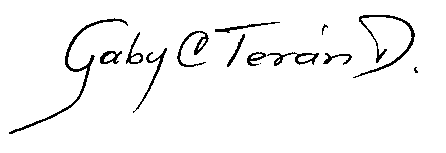 Gaby C Terán D.